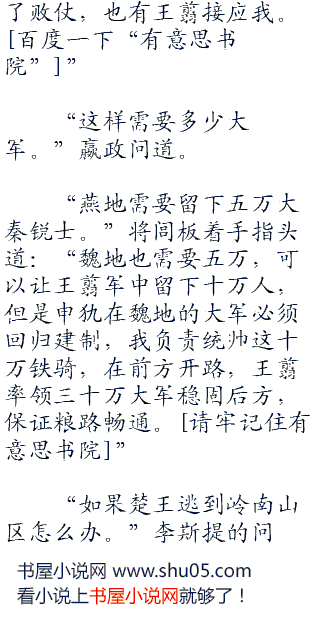 了败仗，也有王翦接应我。
[百度一下“有意思书
院”]”
“这样需要多少大
军。”嬴政问道。
“燕地需要留下五万大
秦锐士。”将闾板着手指头
道：“魏地也需要五万，可
以让王翦军中留下十万人，
但是申犰在魏地的大军必须
回归建制，我负责统帅这十
万铁骑，在前方开路，王翦
率领三十万大军稳固后方，
保证粮路畅通。[请牢记住有
意思书院]”
“如果楚王逃到岭南山
区怎么办。”李斯提的问
书屋小说网 www.shu05.com
看小说上书屋小说网就够了！